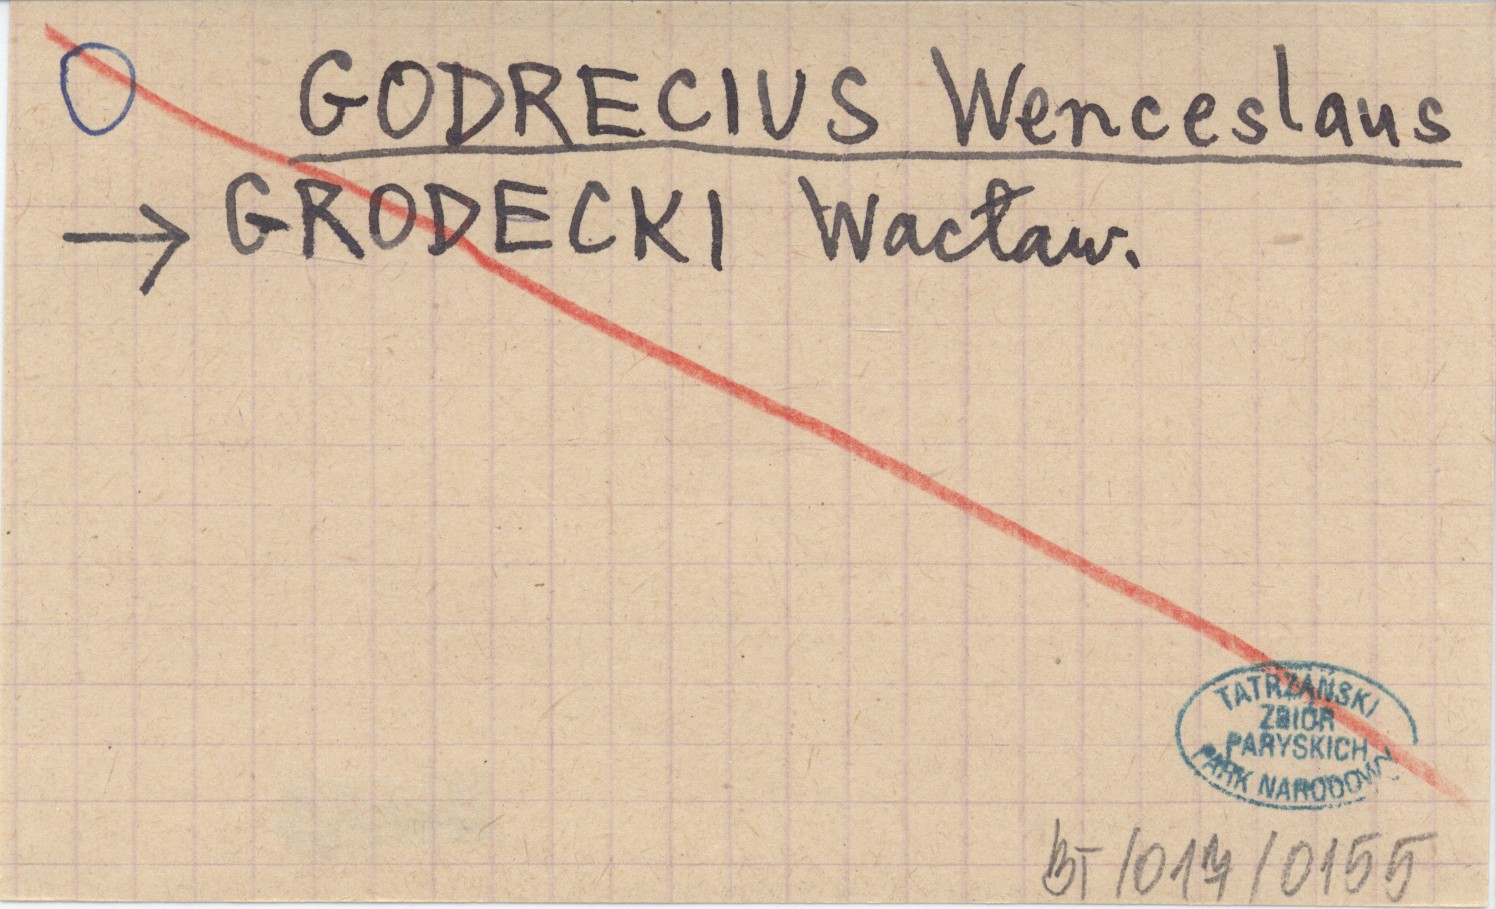 GODRECIUS Wenceslaus
→ GRODECKI Wacław.
TATRZAŃSKI
ZBIÓR
PARYSKICH
PARK NARODOWY
BT/017/0155